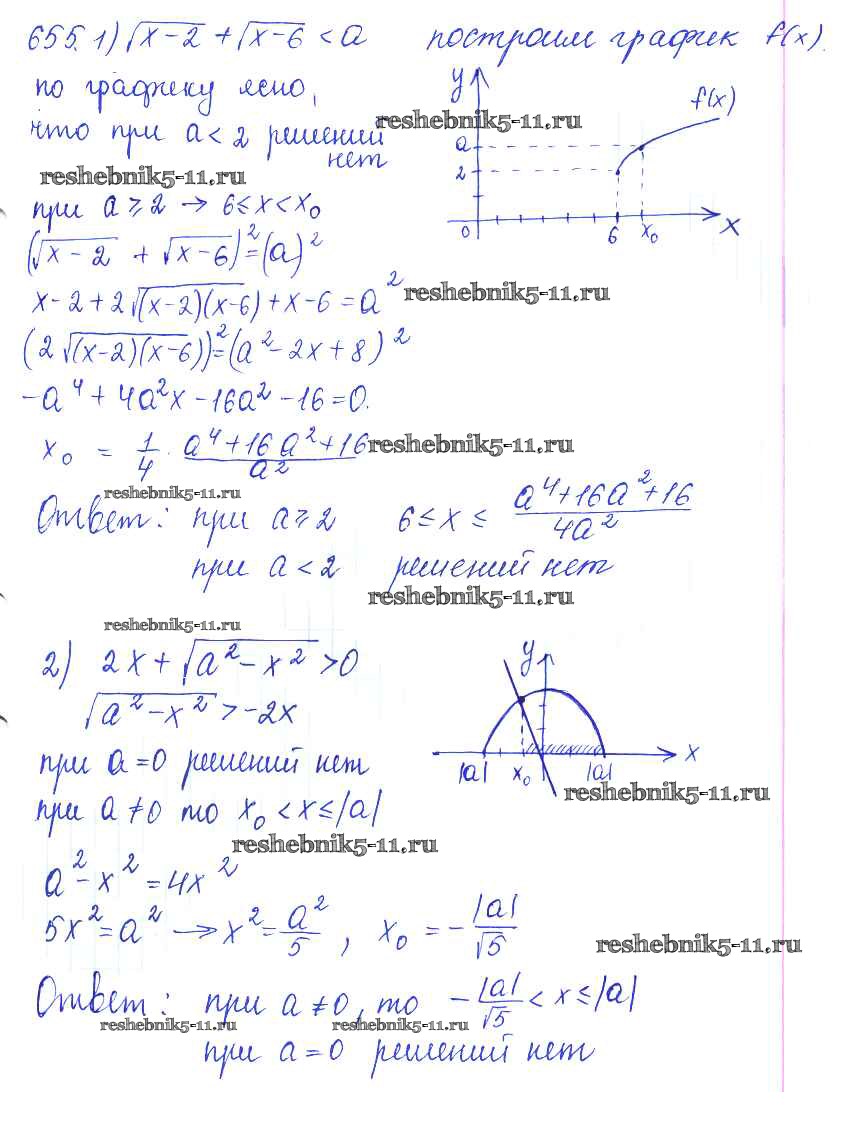 655. 1) √(x-2) + √(x-6) < a построим график f(x).
по графику ясно,
что при a < 2 решений
нет
y
f(x)
a
2
0
6
x₀
x
reshebnik5-11.ru
reshebnik5-11.ru
при a ≥ 2 → 6 ≤ x < x₀
(√(x-2) + √(x-6))² = (a)²
x-2+2√((x-2)(x-6)) + x-6 = a²
reshebnik5-11.ru
(2√((x-2)(x-6)))² = (a²-2x+8)²
-a⁴ + 4a²x - 16a² - 16 = 0.
x₀ = 1/4 · (a⁴+16a²+16)/a²
reshebnik5-11.ru
reshebnik5-11.ru
Ответ: при a ≥ 2 6 ≤ x ≤ (a⁴+16a²+16)/(4a²)
при a < 2 решений нет
reshebnik5-11.ru
reshebnik5-11.ru
2) 2x + √(a²-x²) > 0
√(a²-x²) > -2x
y
x
|a|
x₀
|a|
reshebnik5-11.ru
при a = 0 решений нет
при a ≠ 0 то x₀ < x ≤ |a|
reshebnik5-11.ru
a² - x² = 4x²
5x² = a² → x² = a²/5, x₀ = -|a|/√5
reshebnik5-11.ru
Ответ: при a ≠ 0, то -|a|/√5 < x ≤ |a|
reshebnik5-11.ru
reshebnik5-11.ru
при a = 0 решений нет